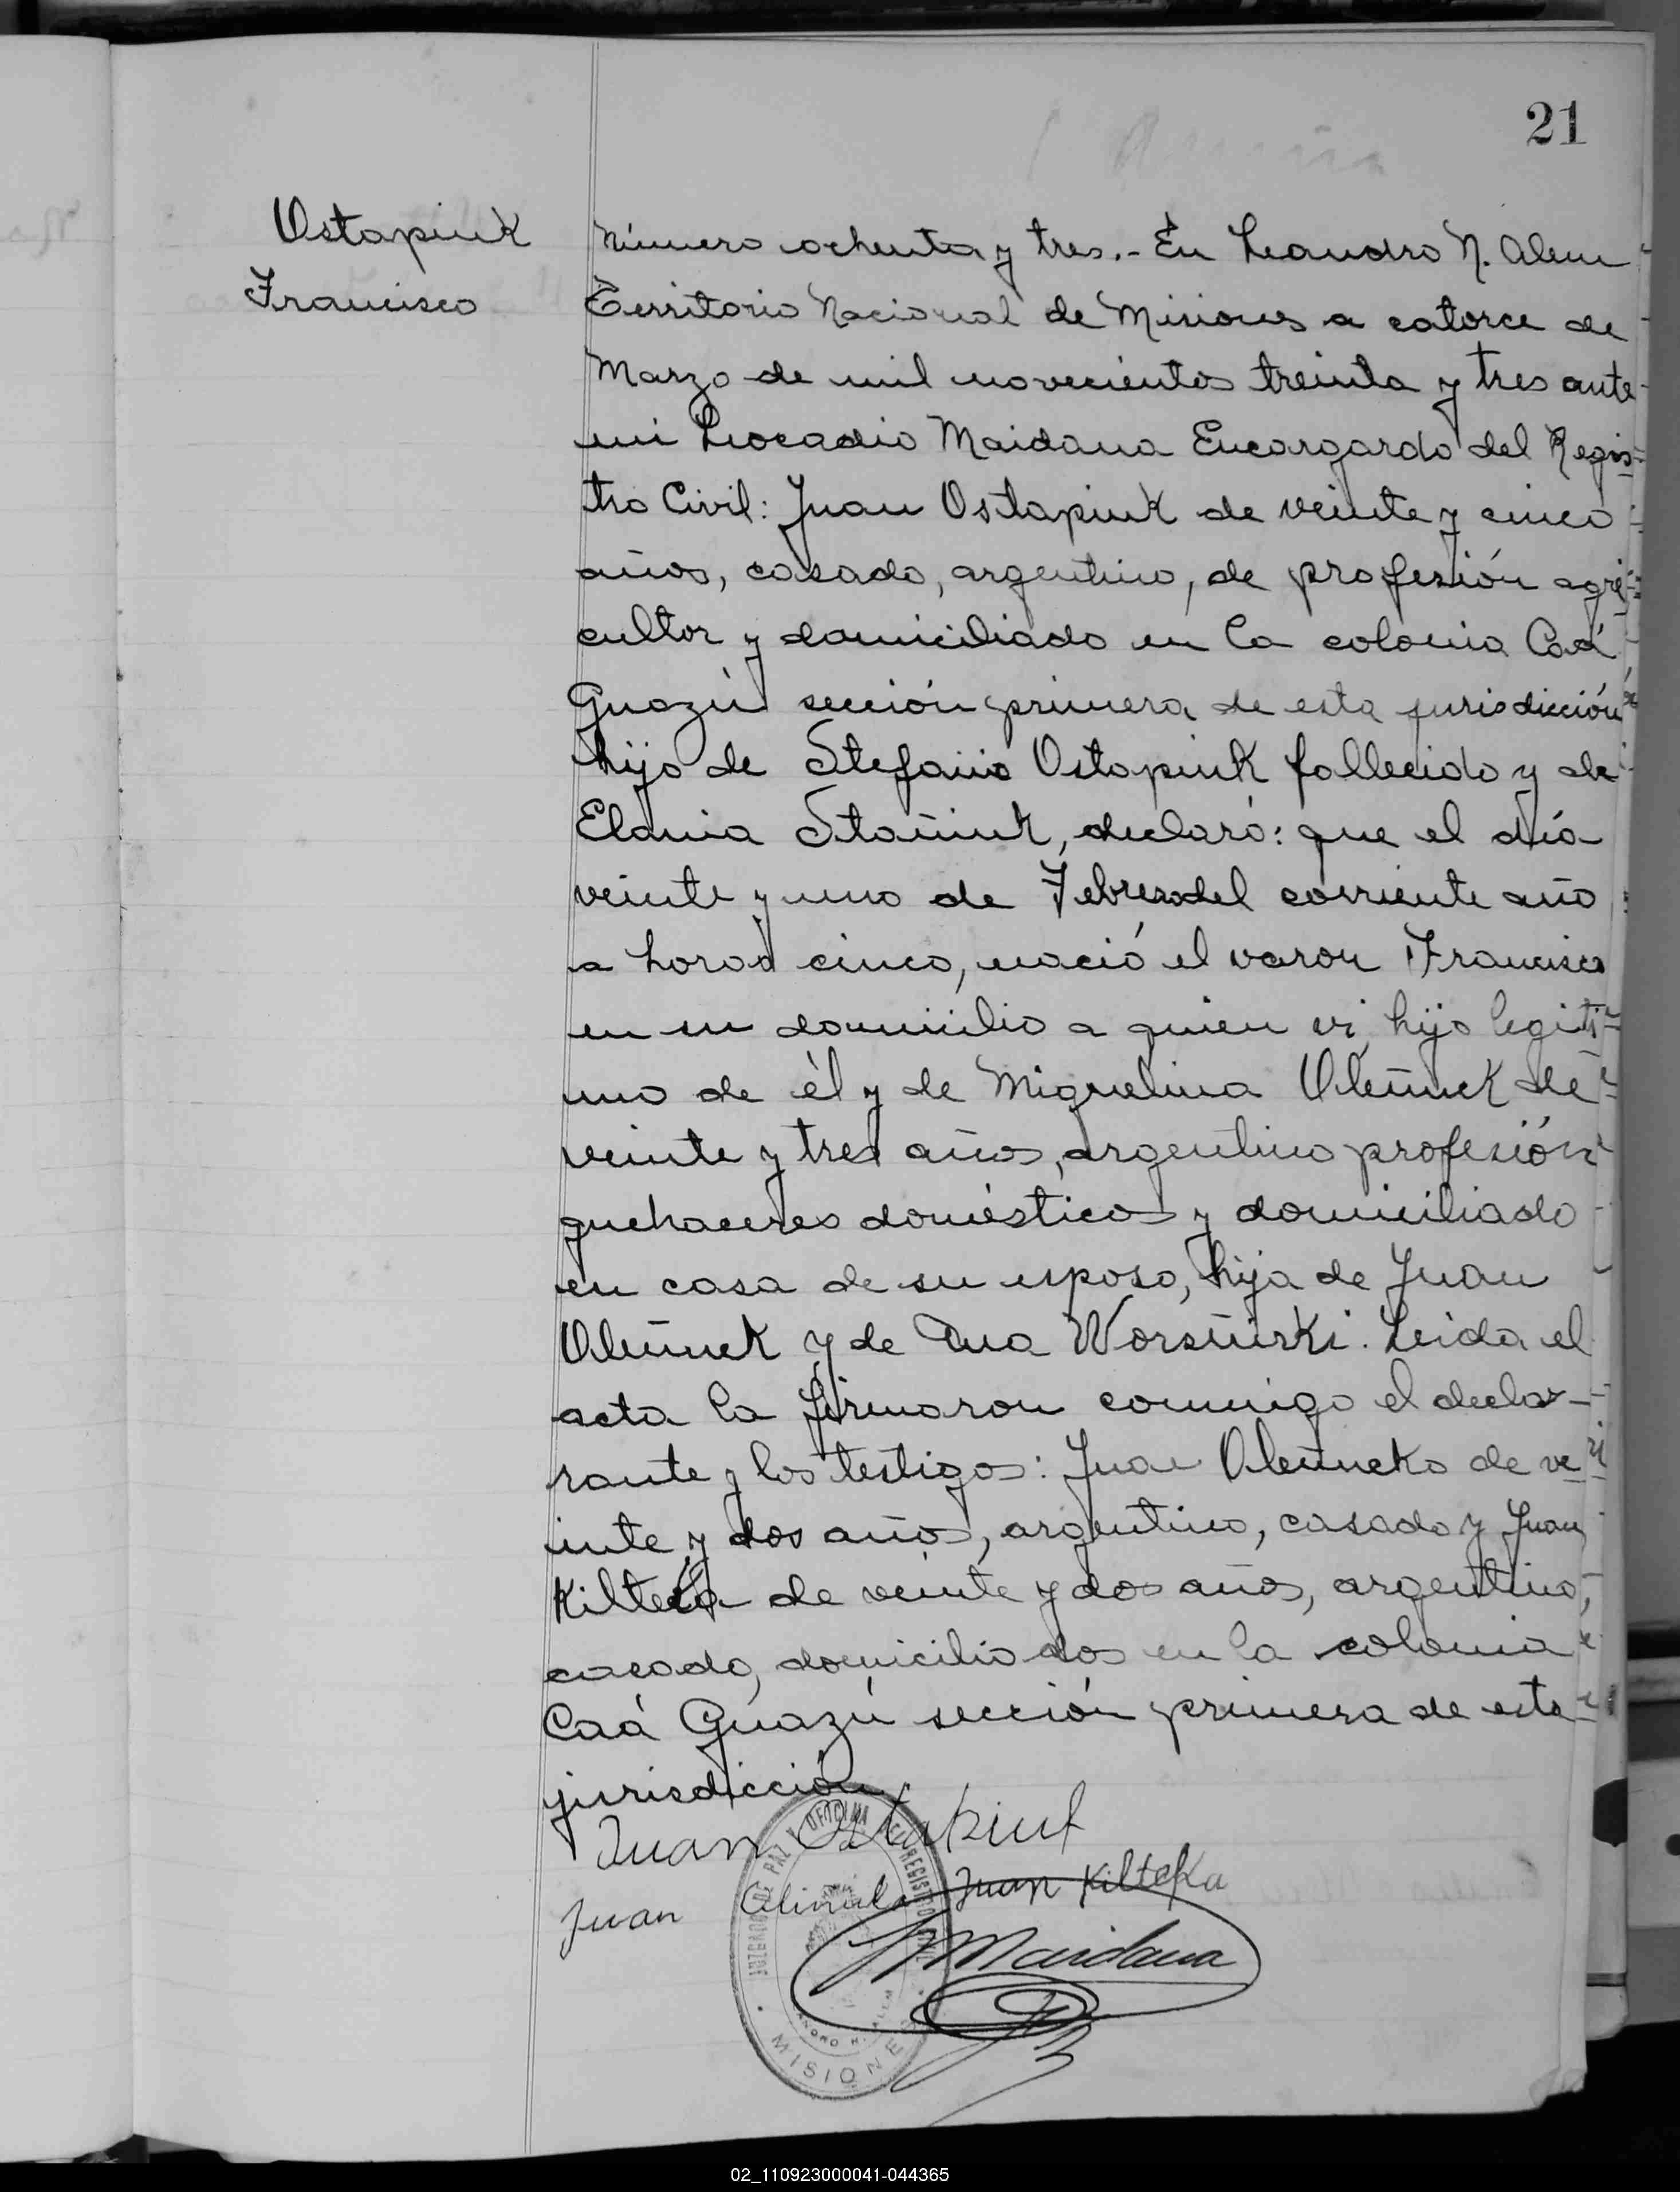 21
Ostapiuk
Francisco
Número ochenta y tres.- En Leandro N. Alem
Territorio Nacional de Misiones a catorce de
Marzo de mil novecientos treinta y tres ante
mi Leocadio Maidana Encargardo del Regis-
tro Civil: Juan Ostapiuk de veinte y cinco
años, casado, argentino, de profesión agri-
cultor y domiciliado en la colonia Caá
Guazú sección primera de esta jurisdicción
hijo de Stefanio Ostapiuk fallecido y de
Elania Stañiuk, declaró: que el día
veinte y uno de Febrero del corriente año
a horas cinco, nació el varon Francisco
en su domicilio a quien vi, hijo legiti-
mo de él y de Miguelina Oleñuek de
veinte y tres años, argentino profesión
quehaceres domésticos y domiciliado
en casa de su esposo, hija de Juan
Oleñuek y de Ana Worsñiski. Leida el
acta la firmaron conmigo el decla-
rante y los testigos: Juan Oleñueko de ve
inte y dos años, argentino, casado y Juan
de veinte y dos años, argentino,
casado, domiciliados en la colonia
Caá Guazú sección primera de esta
jurisdicción
Juan Ostapiuk
Juan Juan Kilteka
Maidana
JUZGADO DE PAZ Y OFICINA DEL REGISTRO CIVIL
LEANDRO N. ALEM
MISIONES
02_110923000041-044365